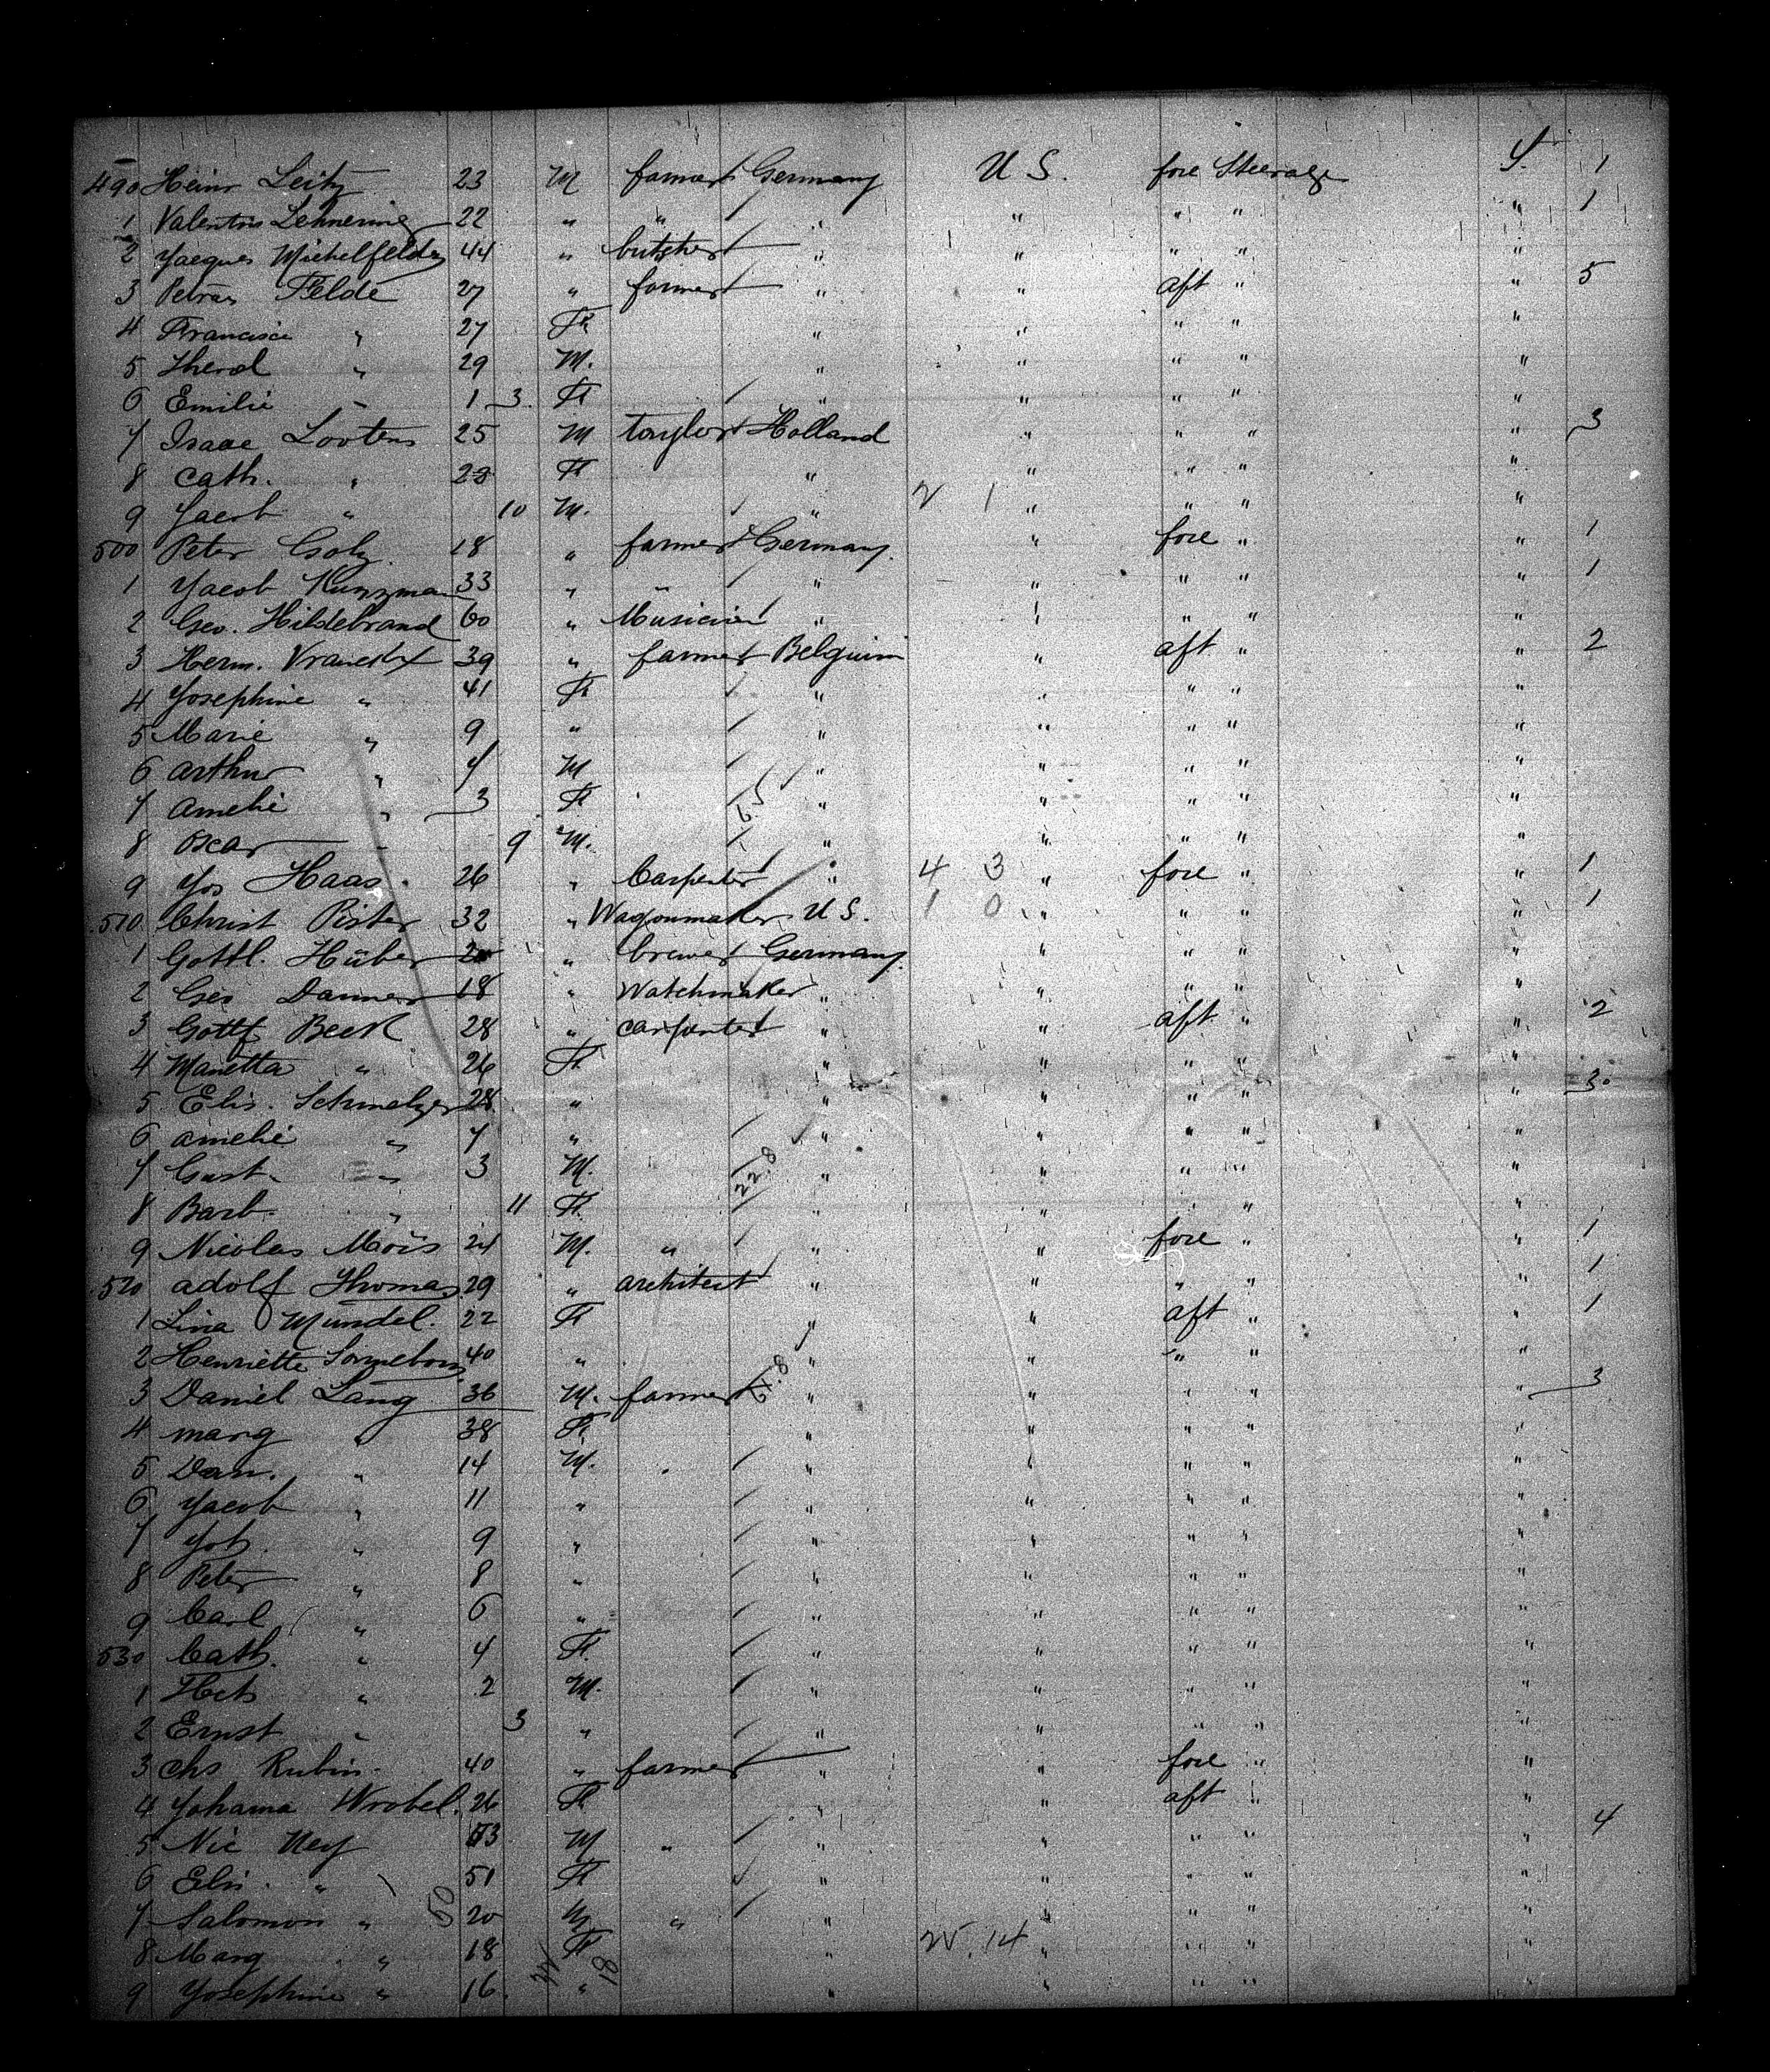 490 Heinr Leitz 23 M farmer Germany U S. fore Steerage S. 1
1 Valentin 22 " " " " " " " 1
2 Jacques Michelfelder 44 " butcher " " " " "
3 Felde 27 " farmer " " aft " " 5
4 Francisca " 27 F " " " " "
5 " 29 M. " " " " "
6 Emilie " 1 3. F " " " " "
7 Isaac Lootens 25 M taylor Holland " " " " 3
8 Cath. " F " " " " "
9 Jacob " 10 M. " 2 1 " " " "
500 Peter 18 " farmer Germany. " fore " " 1
1 Jacob Kunzman 33 " " " " " " 1
2 Geo. Hildebrand 60 " Musicien " " " " "
3 Herm. 39 " farmer Belguim " aft " " 2
4 Josephine " 41 F " " " " "
5 Marie " 9 " " " " " "
6 Arthur " 7 M " " " " "
7 Amelie " 3 F " " " " "
8 Oscar " 9 M. " " " " "
9 Jos Haas. 26 " Carpenter " 4 3 " fore " " 1
510 Christ Pister 32 " Wagonmaker U S. 1 0 " " " " 1
1 Gottl. Hüber " brewer Germany. " " " "
2 Geo Danner 18 " Watchmaker " " " " "
3 Gottf Beck 28 " carpenter " " aft " " 2
4 Marietta " 26 F " " " " "
5 Elis. Schmelzer 28 " " " " " " 3
6 Amelie " 7 " " " " " "
7 Gust. " 3 M. " " " " "
8 Barb. " 11 F. " " " " "
9 Nicolas Mois 24 M. " " " fore " " 1
520 Adolf Thomas 29 " architect " " " " " 1
1 Lina Mundel. 22 F " " aft " " 1
2 Henriette Sonneborn 40 " " " " " "
3 Daniel Lang 36 M. farmer " " " " " 3
4 Marg " 38 F. " " " " "
5 Dan. " 14 M. " " " " "
6 Jacob " 11 " " " " " "
7 Joh. " 9 " " " " " "
8 Peter " 8 " " " " " "
9 Carl " 6 " " " " " "
530 Cath. " 4 F. " " " " "
1 " 2 M. " " " " "
2 Ernst " 3 " " " " " "
3 Chs Rubin. 40 " farmer " " fore " "
4 Johanna Wrobel. 26 F " " aft " "
5 Nic Ney M " " " " " " 4
6 Elis. " 51 F " " " " "
7 Salomon " 20 M " " " " " "
8 Marg " 18 F " 25. 14 " " " "
9 Josephine " 16. " " " " " "